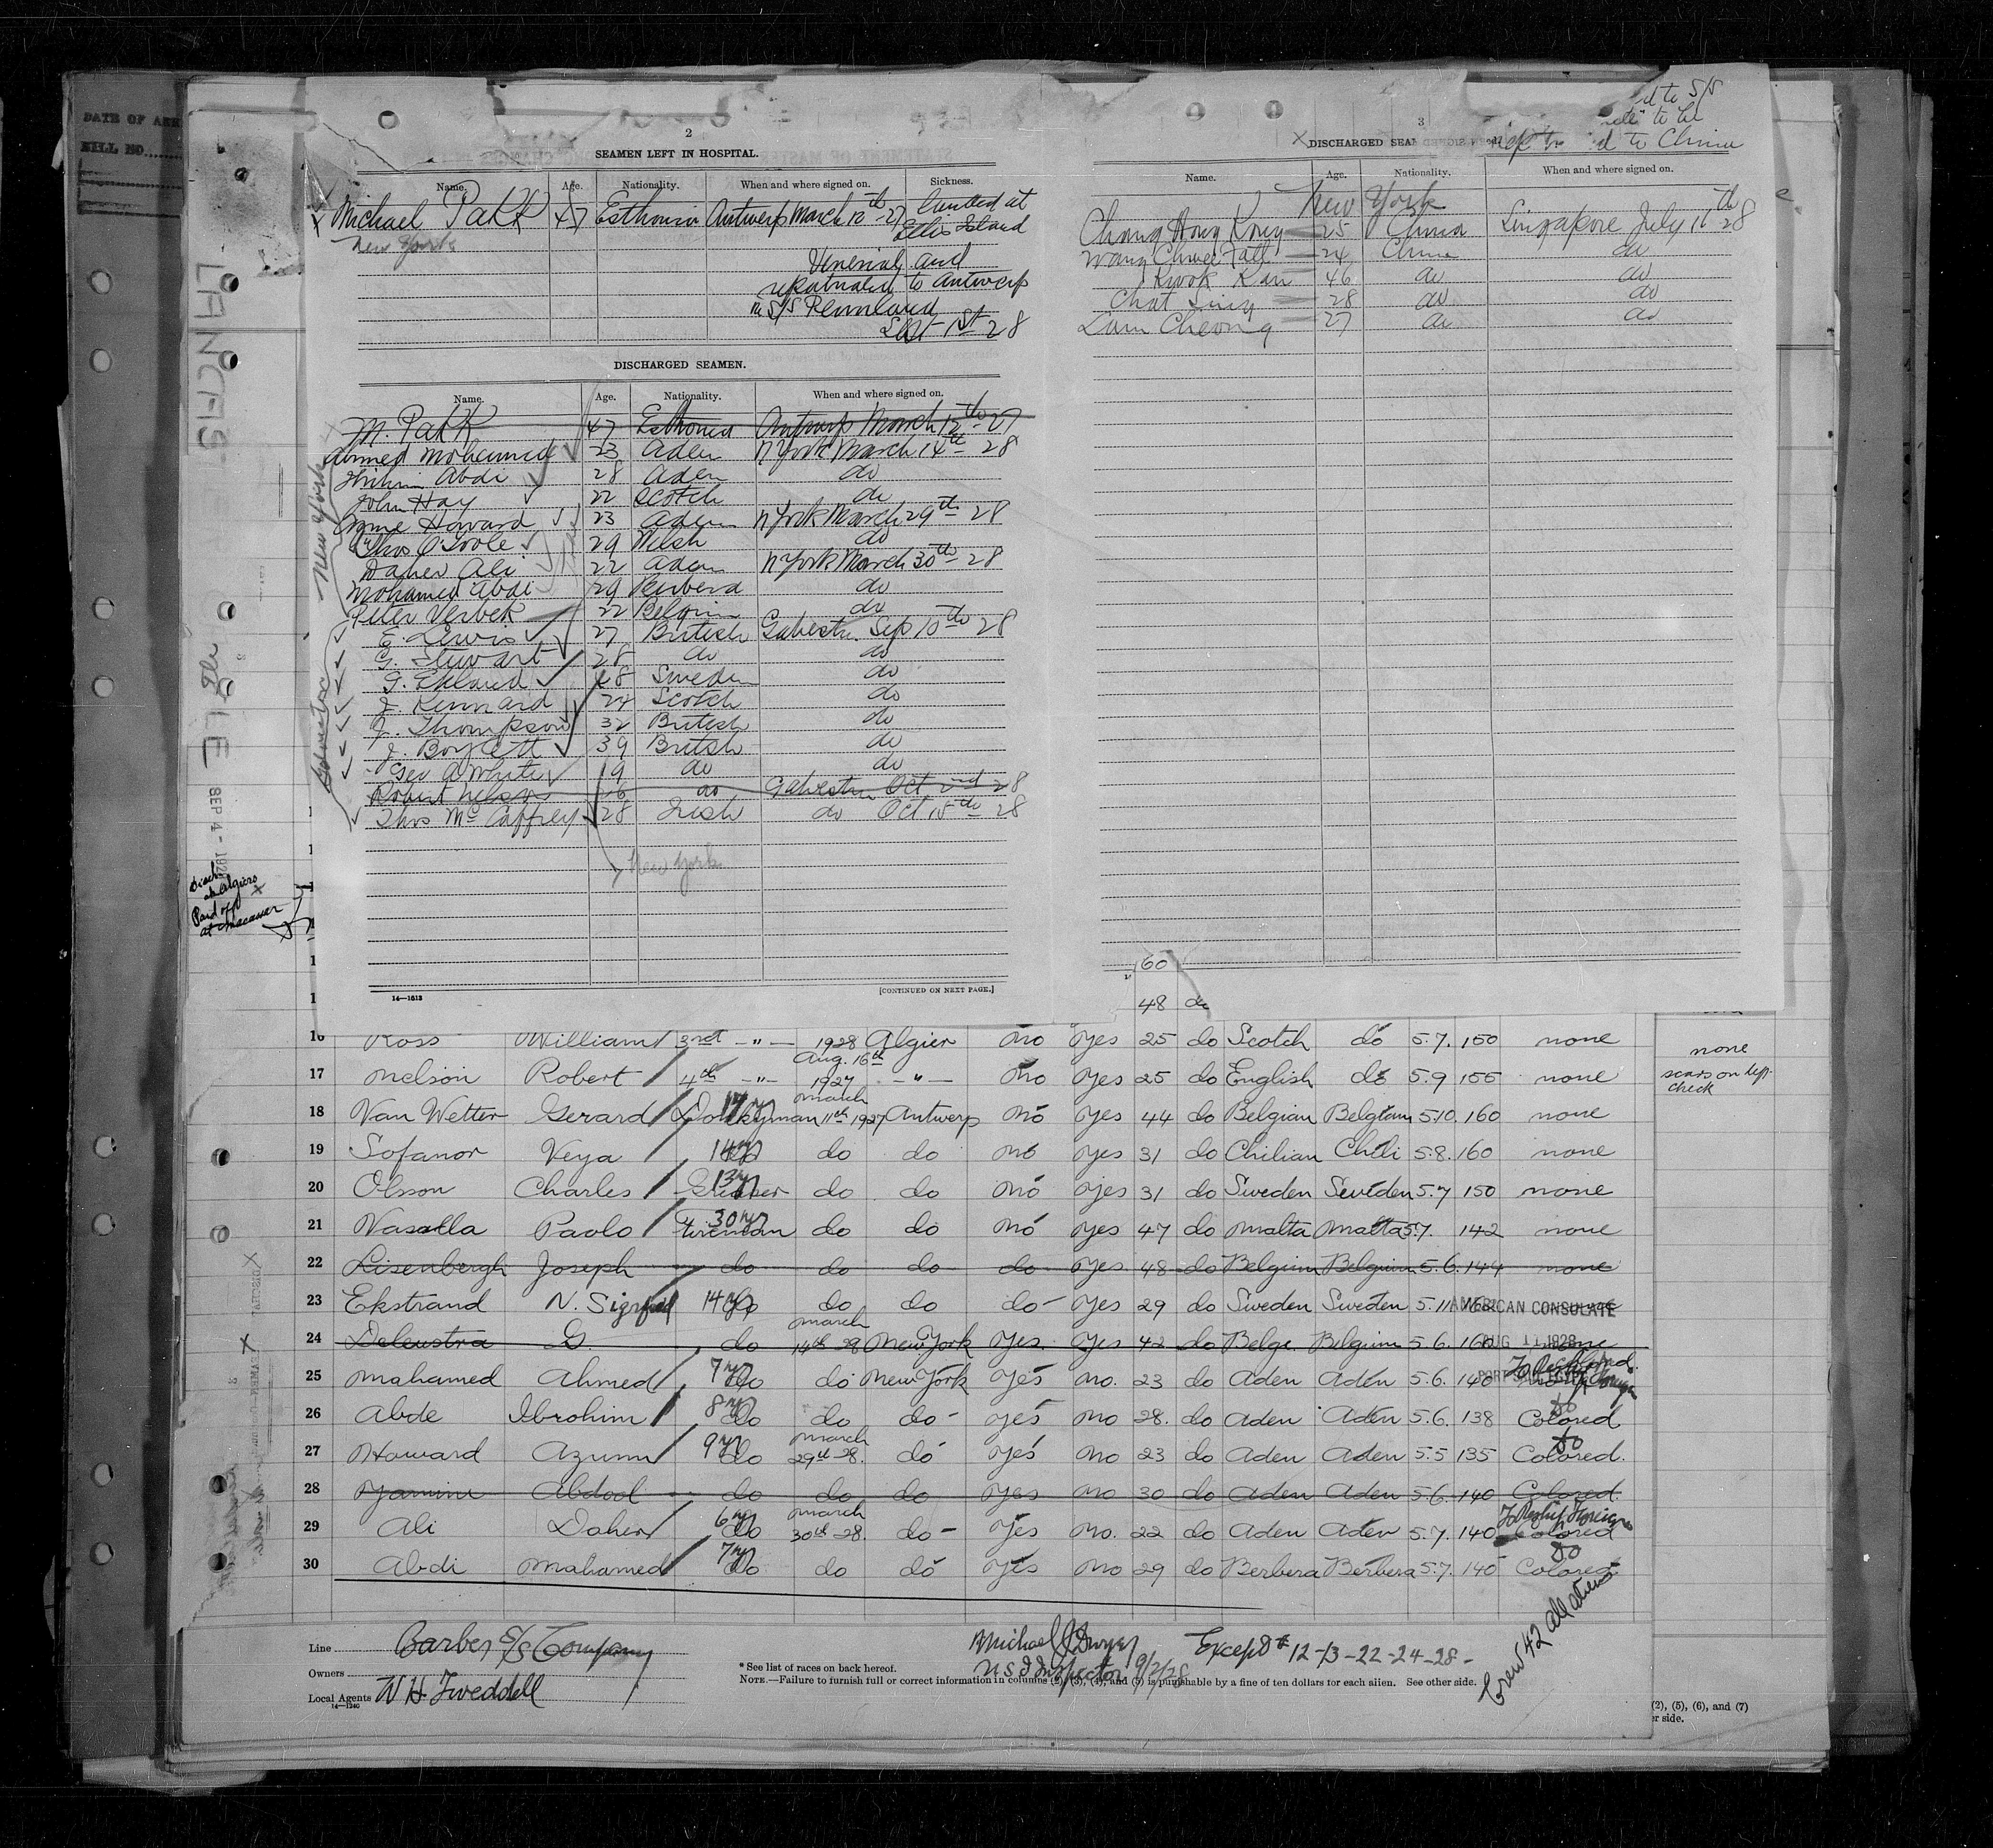 DATE OF
BILL NO.
2
SEAMEN LEFT IN HOSPITAL.
Name. Age. Nationality. When and where signed on. Sickness.
Michael Pakk 47 Esthonia Antwerp March 12th - 27 landed at
New York Ellis Island
Venerial and
repatriated to Antwerp
in S/S Pennland
1st - 28
DISCHARGED SEAMEN.
Name. Age. Nationality. When and where signed on.
M. Pakk 47 Esthonia Antwerp March 12th - 27
Ahmed Mohamed 23 Aden N York March 14th 28
Abdi 28 Aden do
John Hay 22 Scotch do
Howard 23 Aden N York March 29th - 28
Thos O'Toole 29 Welsh do
Daher Ali 22 Aden N York March 30th - 28
Mohamed Abdi 29 Berbera do
Peter Verbek 22 Belgium do
E. Lewis 27 British Galveston Sep 10th 28
G. Stewart 28 do do
G. Eklund 28 Sweden do
J. Kennard 24 Scotch do
J. Thompson 32 British do
J. Boylett 39 British do
Geo A White 19 do do
Robert Nelson 26 do Galveston Oct 2nd 28
Thos Mc Caffrey 28 Irish do Oct 15th - 28
New York
Galveston
New York
14—1613
[CONTINUED ON NEXT PAGE.]
3
d to S/S
to be
d to China
DISCHARGED SEA
Name. Age. Nationality. When and where signed on.
New York
Chong Hong Kong 25 China Singapore July 11th 28
Wang Chwee Fatt 24 China do
Kwok Kan 46 do do
Chat Sing 28 do do
Lam Cheong 27 do do
LANCAS
LE
SEP 4 - 192
Disch.
at Algiers
Paid off
at Macauer
60
48 do
16 Ross William 3rd -"- 1928 Algier no yes 25 do Scotch do 5.7. 150 none
none
17 Nelson Robert 4th -"- Aug. 16th 1927 -"- no yes 25 do English do 5.9 155 none
scars on left check
18 Van Wetter Gerard Donkeyman March 11th 1927 Antwerp no yes 44 do Belgian Belgium 5.10. 160 none
19 Sofanor Veya 14 yr do do do no yes 31 do Chilian Chili 5.8. 160 none
20 Olsson Charles 13 yr Greaser do do no yes 31 do Sweden Sweden 5.7 150 none
21 Vasalla Paolo 30 yr Fireman do do no yes 47 do Malta Malta 5.7. 142 none
22 Lisenbergh Joseph do do do do yes 48 do Belgium Belgium 5.6. 144 none
23 Ekstrand N. Sigrfrid 14 yr do do do do yes 29 do Sweden Sweden 5.11 162 none
AMERICAN CONSULATE
24 Deleustra G. do March 14th 29 New York yes. yes 42 do Belge. Belgium 5.6. 160 none
AUG 11 1928
25 Mahamed Ahmed 7 yr do do New York yes no. 23 do Aden Aden 5.6. 140
26 Abde Ibrohim 8 yr do do do yes no 28. do Aden Aden 5.6. 138 Colored
27 Howard Azumi 9 yr do March 29th - 28. do yes no 23 do Aden Aden 5.5 135 Colored.
28 Yamini Abdool do do do yes no 30 do Aden Aden 5.6. 140 Colored.
29 Ali Daher 6 yr do March 30th 28. do yes no. 22 do Aden Aden 5.7. 140 To Reship Foreign Colored
30 Abdi Mahamed 7 yr do do do yes no 29 do Berbera Berbera 5.7. 145 do Colored
Line Barber S/S Company
Owners
Local Agents W H. Tweddell
14—1240
Michael J Dwyer
U S I Inspector 9/2/28
Except # 12-13-22-24-28-
Crew 42 all aliens
* See list of races on back hereof.
NOTE.—Failure to furnish full or correct information in columns (2), (3), (4), and (5) is punishable by a fine of ten dollars for each alien. See other side.
(2), (5), (6), and (7)
r side.